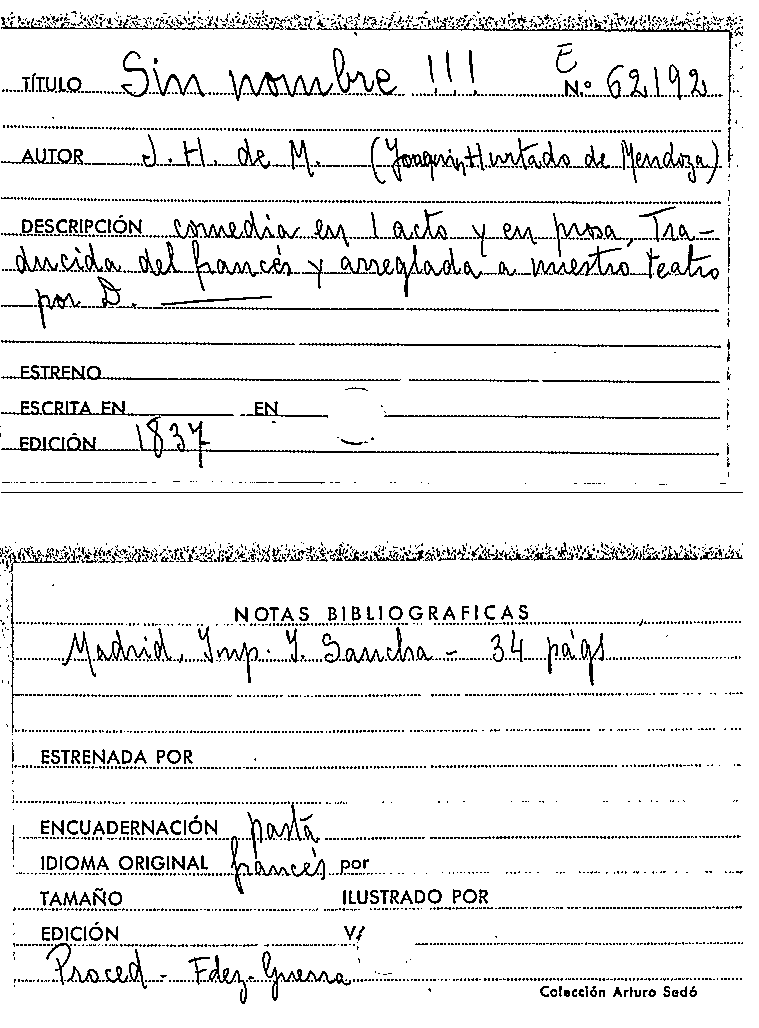 TÍTULO Sin nombre !!! E
N.º 62192
AUTOR J. H. de M. (Joaquin Hurtado de Mendoza)
DESCRIPCIÓN comedia en 1 acto y en prosa, Tra-
ducida del francés y arreglada a nuestro teatro
por D. ———
ESTRENO
ESCRITA EN EN
EDICIÓN 1837
NOTAS BIBLIOGRAFICAS
Madrid, Imp. I. Sancha - 34 págs
ESTRENADA POR
ENCUADERNACIÓN pasta
IDIOMA ORIGINAL francés por
TAMAÑO ILUSTRADO POR
EDICIÓN V/
Proced - Fdez-Guerra
Colección Arturo Sedó